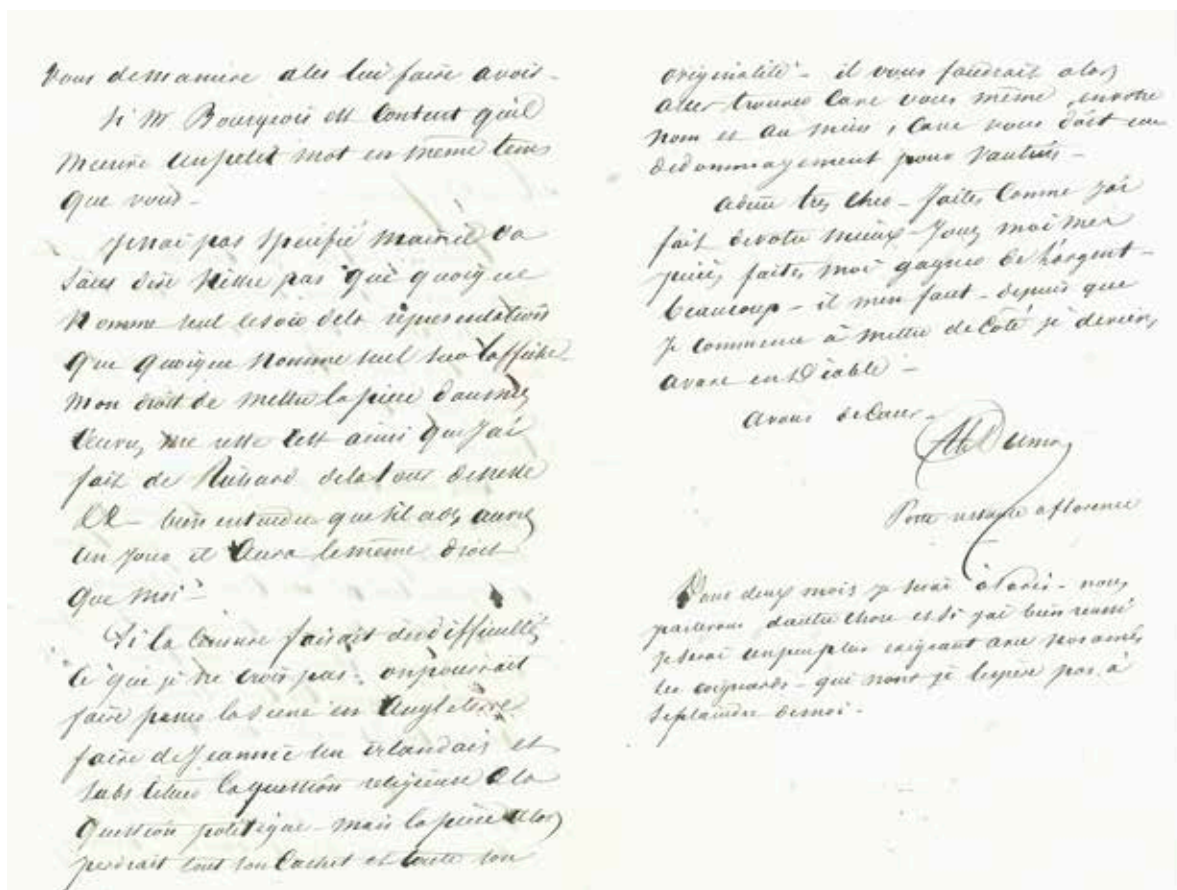 vous de maniere a les lui faire avoir -
Si Mr Bourgeois est content qu'il
m'ecrive un petit mot en même tems
que vous -
Je n'ai pas spécifié mais il va
sans dire n'est ce pas que quoique
nommé seul le soir de la représentation
que quoique nommé seul sur l'affiche
mon droit de mettre la piece dans mes
œuvres me reste c'est ainsi que j'ai
fait de Richard de la tour de nesle
&& - bien entendu que s'il a des œuvres
un jour il aura le même droit
que moi -
Si la Censure faisait des difficultés
ce que je ne crois pas - on pourrait
faire passer la scene en Angleterre
faire de Jeannic un irlandais et
substituer la question religieuse a la
question politique - mais la piece alors
perdrait tout son cachet et toute son
originalité - il vous faudrait alors
aller trouver Cavé vous même, en votre
nom et au mien, Cavé vous doit un
dedommagement pour Vautrin -
adieu tres cher - faites comme j'ai
fait de votre mieux - Jouez moi mes
pieces, faites moi gagner de l'argent -
beaucoup - il m'en faut - depuis que
je commence à mettre de coté je deviens
avare en Diable -
a vous de cœur -
Alex Dumas
Poste restante a florence
Dans deux mois je serai à Paris - nous
parlerons d'autre chose et si j'ai bien reussi
je serai un peu plus exigeant avec nos amis
les cogniards - qui n'ont je l'espere pas à
se plaindre de moi -